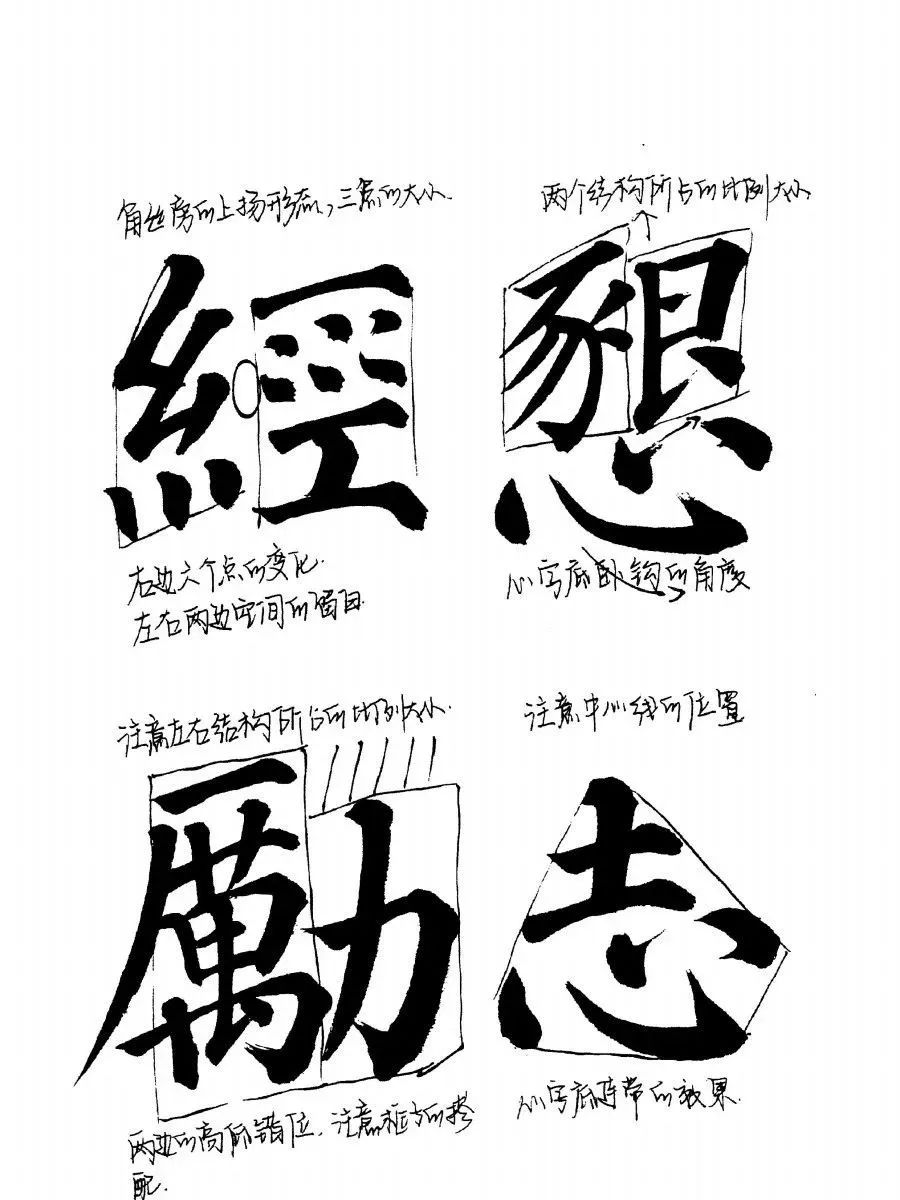 角丝旁的上扬形态，三点的大小.
两个结构所占的比例大小
經
懇
右边六个点的变化.
左右两边空间的留白.
心字底卧钩的角度
注意左右结构所占的比例大小.
注意中心线的位置
勵
志
两边的高低错位.注意框方的搭
配.
心字底连带的效果.